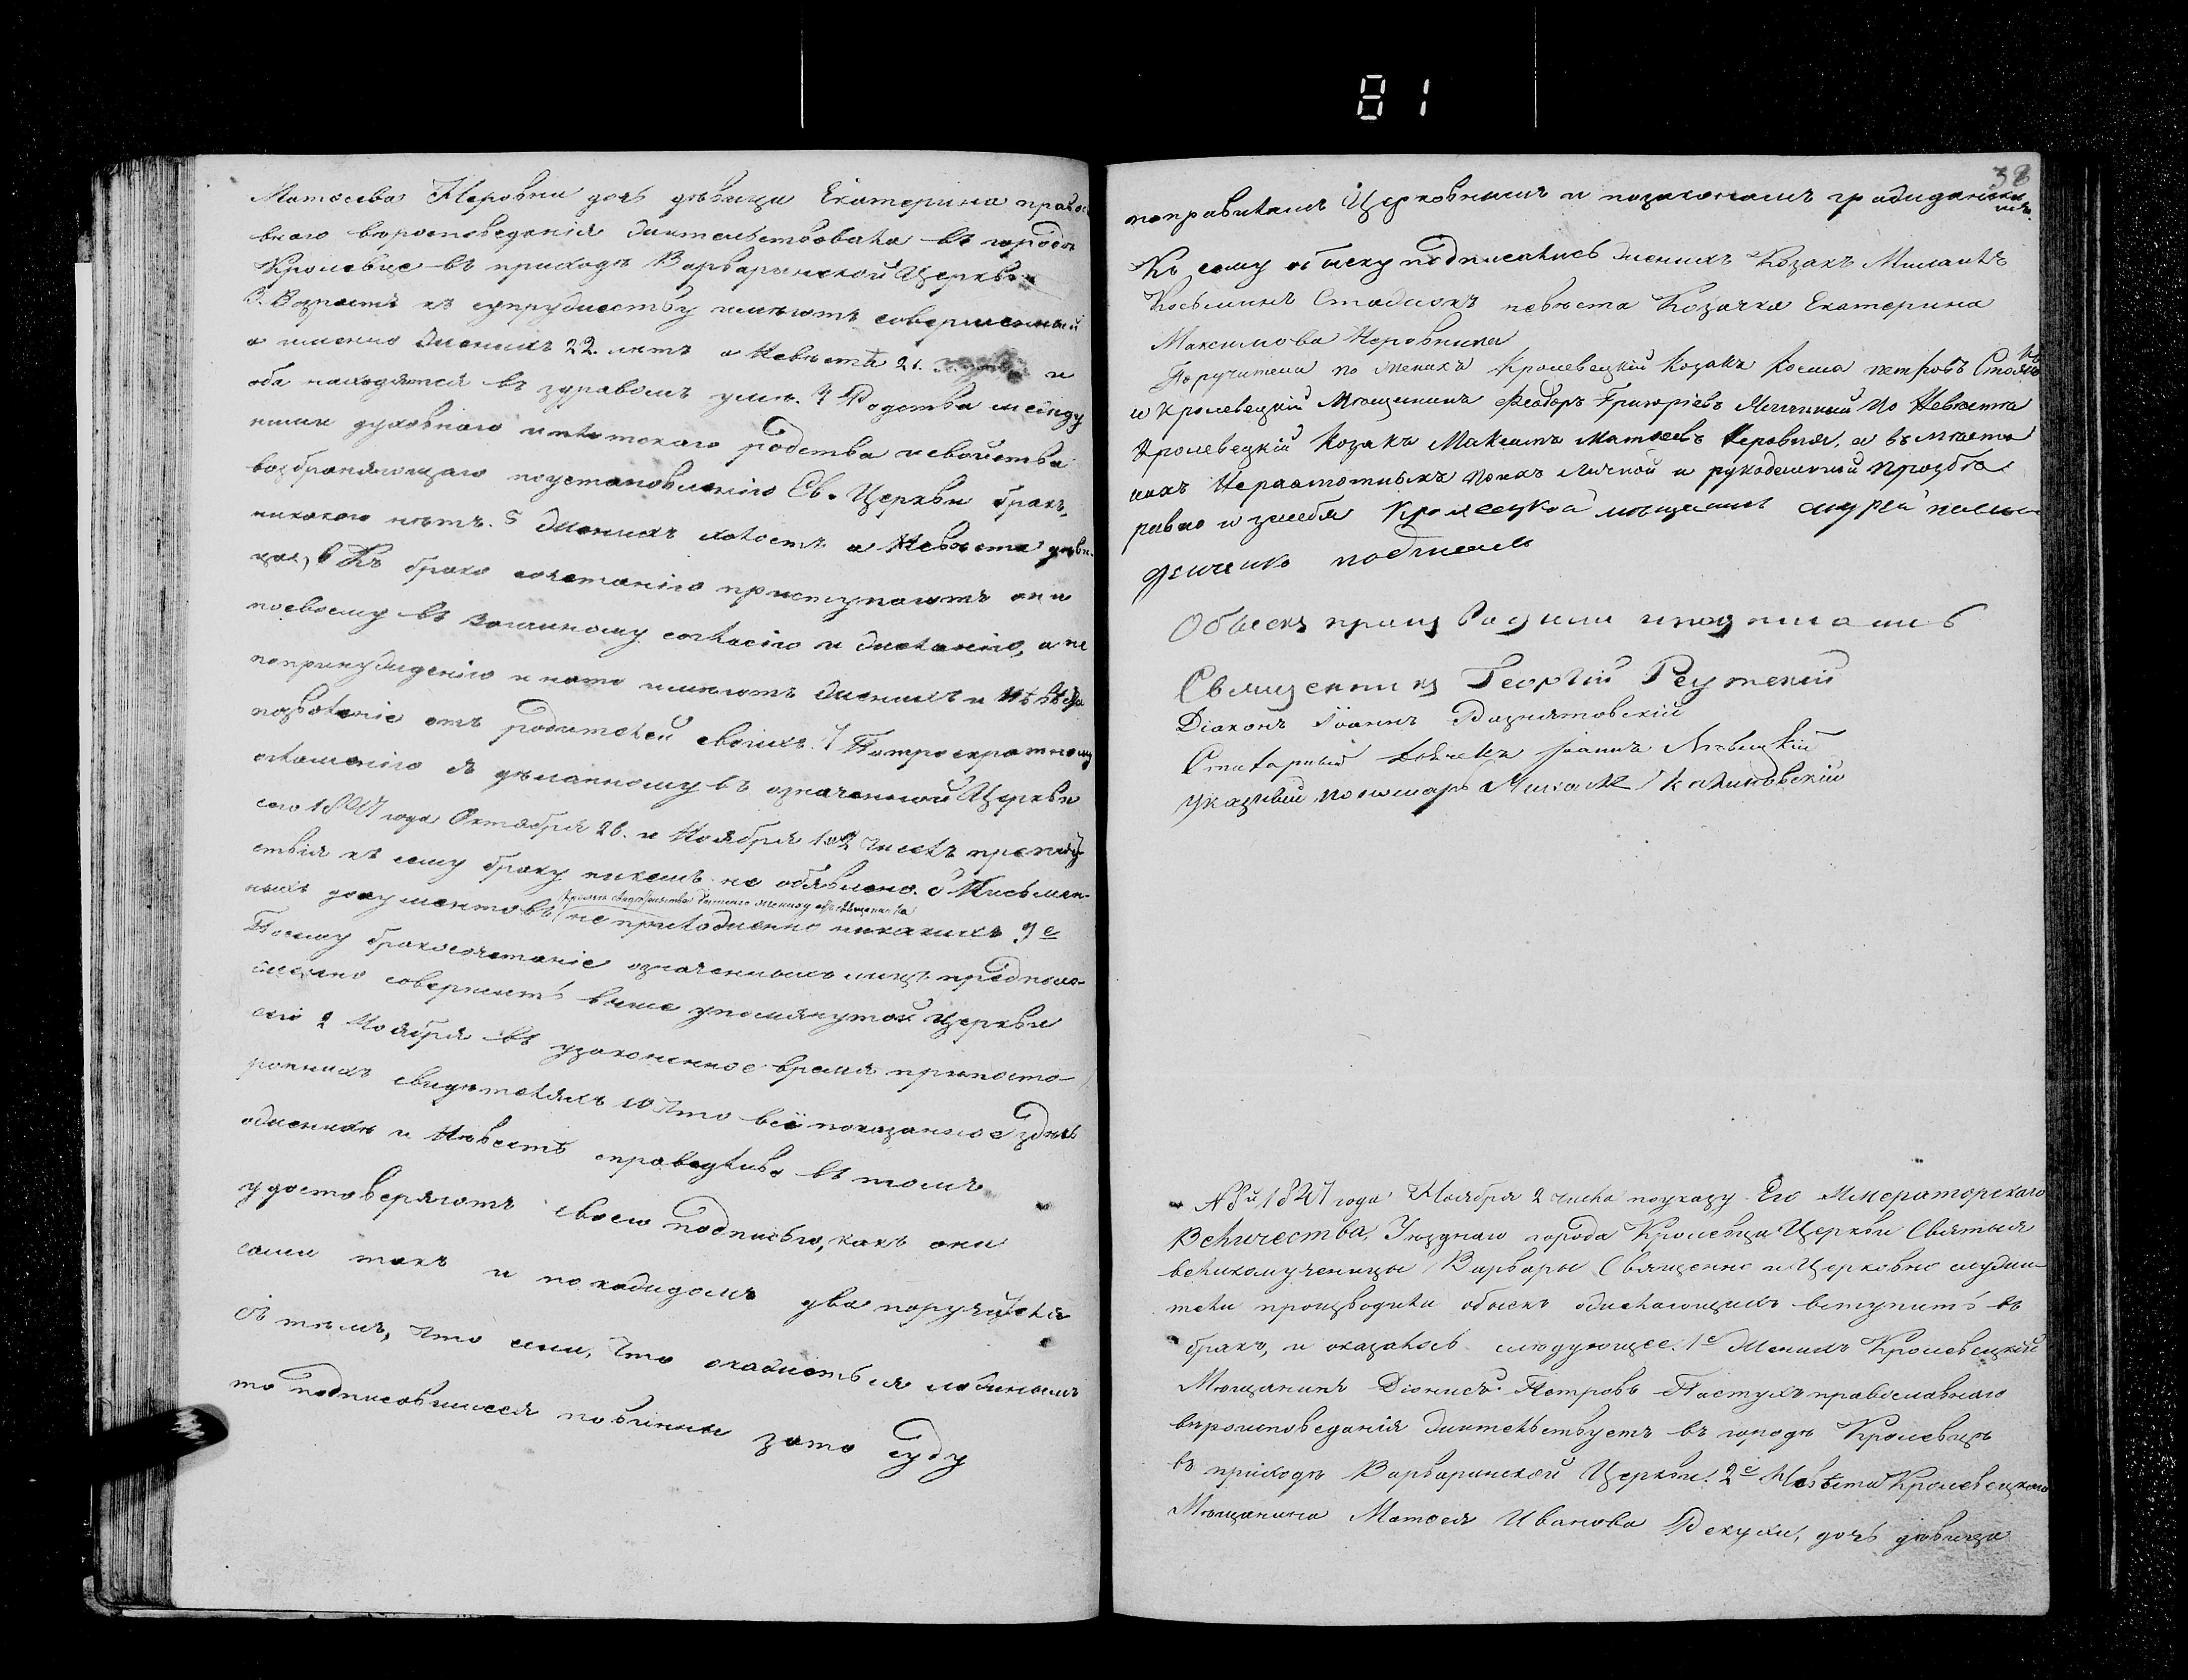 81
Матѳеева Неровни дочь дѣвица Екатерина право
внаго вѣроисповеданія жительствовала въ городѣ
Кролевце въ приходѣ Варваринской Церкви
3. Возрастъ къ супружеству имѣютъ совершенный
а именно Женихъ 22. лѣтъ а Невѣста 21. и
оба находятся въ здравомъ умѣ. 4 Родства между
ними духовнаго и плотскаго родства и свойства
возбраняющаго поустановленію Св. Церкви бракъ,
никакого нѣтъ. 5 Женихъ холостъ а Невѣста дѣви-
ца, 6 Къ брако сочетанію приступаютъ они
посвоему въ заимному согласію и желанію, а не
попринужденію и нато имѣютъ Женихъ и Невѣста
позволеніе отъ родителей своихъ. 7 Потроекратному
оглашенію з дѣланному въ означенной Церкви
сего 1847 года Октября 26. и Ноября 1 и 2 числъ препят-
ствія къ сему браку никемъ не объявлено. 8 Письмен-
ныхъ документовъ не приложенно никакихъ 9е
Посему бракосочетаніе означенныхъ лицъ предполо-
жено совершить выше упомянутой Церкви
сего 2 Ноября въ узаконенное время припосто-
ронныхъ свидѣтеляхъ 10 Что всё показанное здѣсь
оженихѣ и Невѣстѣ справедливо въ томъ
удостоверяютъ своею подписью, какъ они
сами такъ и покаждомъ два поручителя
съ тѣмъ, что если, что окажеться ложнымъ
то подписовшиеся повинни зато Суду
38
поправиламъ Церковнымъ и позаконамъ гражданским
Къ сему обыску подписались Женихъ Козакъ Михаилъ
Косьминъ Стаднокъ невѣста Козачка Екатерина
Максимова Неровнина
Поручители по женихѣ Кролевецкій Козакъ Косма петровъ
и Кролевецкій Мѣщанинъ Феодоръ Григоріевъ по Невѣстѣ
Кролевецкій Козакъ Максимъ Матѳеевъ Неровня, а вместо
ихъ Неграмотныхъ поихъ личной и рукоданной прозбѣ
равно и засебя Кролевецкой мещанинъ андрей
подписалъ
Обыскъ производили иподписались
Священникъ Георгій Реутскій
Діаконъ Іоаннъ Вознятовскій
Стихарный Дьячекъ Іоаннъ Левицкій
Указный пономарь Михаилъ Калиновскій
№ 8й 1847 года Ноября 2 числа поуказу Его Имераторскаго
Величества, Уезднаго города Кролевца Церкви Святыя
великомученицы Варвары Священно и Церковно служи-
тели производили обыскъ ожелающихъ вступить въ
бракъ, и оказалось слюдующее. 1е Женихъ Кролевецкій
Мѣщанинъ Діонисъ Петровъ Пастухъ православнаго
вѣроисповеданія жительствуетъ въ городѣ Кролевцѣ
въ приходѣ Варваринской Церкви. 2е Невѣста Кролевецкого
Мѣщанина Матѳея Иванова Векухи, дочь дѣвица